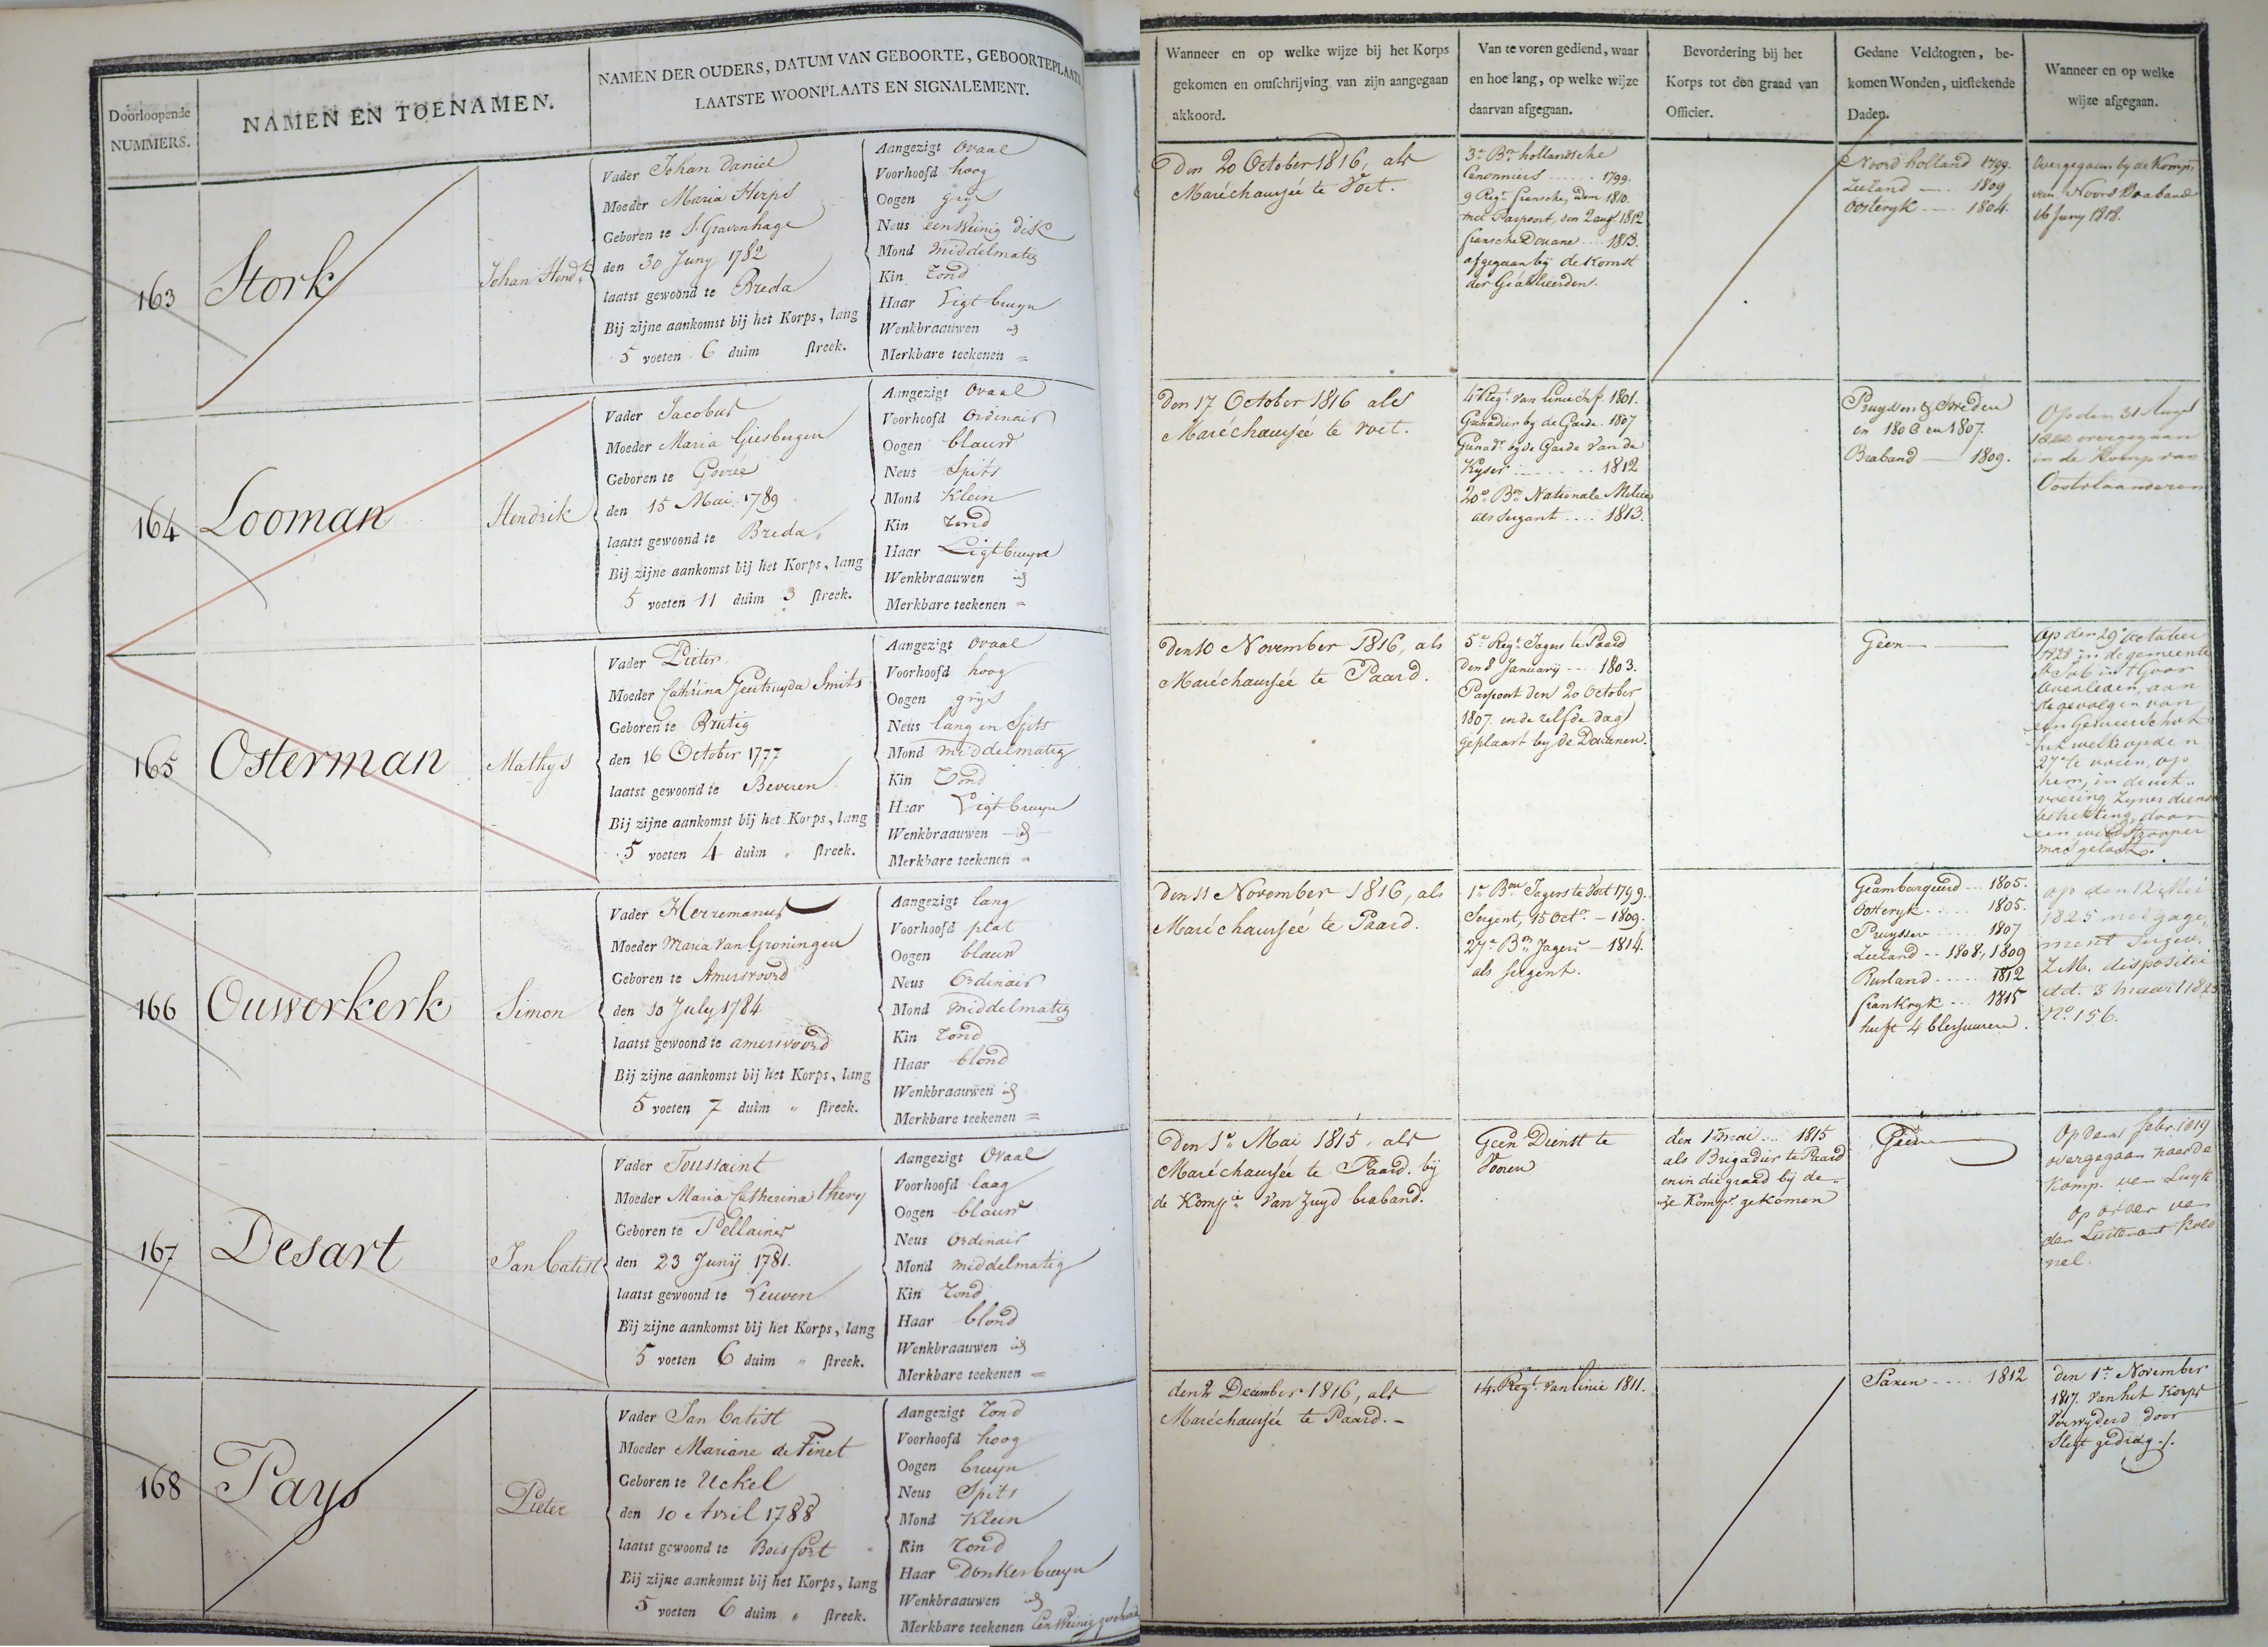 Doorloopende
NUMMERS.
NAMEN EN TOENAMEN.
NAMEN DER OUDERS, DATUM VAN GEBOORTE, GEBOORTEPLAATS
LAATSTE WOONPLAATS EN SIGNALEMENT.
Wanneer en op welke wijze bij het Korps
gekomen en omschrijving van zijn aangegaan
akkoord.
Van te voren gediend, waar
en hoe lang, op welke wijze
daarvan afgegaan.
Bevordering bij het
Korps tot den graad van
Officier.
Gedane Veldtogten, be-
komen Wonden, uitstekende
Daden.
Wanneer en op welke
wijze afgegaan.
163
Stork
Johan Hendk
Vader Johan Daniel
Moeder Maria Herps
Geboren te S'Gravenhage
den 30 Juny 1782
laatst gewoond te Breda
Bij zijne aankomst bij het Korps, lang
5 voeten 6 duim streek.
Aangezigt Ovaal
Voorhoofd hoog
Oogen grys
Neus een Weinig dik
Mond middelmatig
Kin rond
Haar Ligt bruyn
Wenkbraauwen id
Merkbare teekenen =
Den 20 October 1816, als
Maréchaussée te Voet.
3e Bn hollandsche
Canonniers ...... 1799.
9 Regt fransche, dem 1810.
met Paspoort, den 2 augt 1812
fransche Douane .... 1813.
afgegaan bij de Komst
der Geallieerden.
Noord holland 1799.
Zeeland ---- 1809
Oosteryk ---- 1804.
Overgegaan by de Komp.
van Noord Braband
16 Juny 1818.
164
Looman
Hendrik
Vader Jacobus
Moeder Maria Giesbergen
Geboren te Goerée
den 15 Mai 1789
laatst gewoond te Breda
Bij zijne aankomst bij het Korps, lang
5 voeten 11 duim 3 streek.
Aangezigt Ovaal
Voorhoofd Ordinair
Oogen blauw
Neus Spits
Mond Klein
Kin rond
Haar Ligt bruyn
Wenkbraauwen id
Merkbare teekenen =
Den 17 October 1816 als
Maréchaussée te voet.
4e Regt van Linie Inf. 1801.
Grenadier by de Garde. 1807
Grenadr by de Garde van de
Kyser ....... 1812
20e Bn Nationale Militie
als sergant .... 1813.
Pruyssen & Sweden
in 1806 en 1807.
Braband ---- 1809.
Op den 31 Augt
1822 overgegaan
in de Komp van
Oostvlaanderen
165
Osterman
Mathys
Vader Pieter
Moeder Cathrina Geertruyda Smits
Geboren te Brutig
den 16 October 1777
laatst gewoond te Beveren
Bij zijne aankomst bij het Korps, lang
5 voeten 4 duim " streek.
Aangezigt Ovaal
Voorhoofd hoog
Oogen grys
Neus lang en Spits
Mond middelmatig
Kin rond
Haar Ligt bruyn
Wenkbraauwen id
Merkbare teekenen =
Den 10 November 1816, als
Maréchaussée te Paard.
5e Regt Jagers te Paard
den 8 Januarij ---- 1803.
Paspoort den 20 October
1807 en de zelfde dag
geplaast by de Douanen.
Geen
Op den 29e october
1828 in de gemeente
St Job in 't Goor
overleden, aan
de gevolgen van
een Geweerschot
het welke op den
27e te voren, op
hem, in de uit-
voering zyner dienst
betrekting, door
een wildstrooper
was gelost.
166
Ouwerkerk
Simon
Vader Herremanus
Moeder Maria van Groningen
Geboren te Amersvoord
den 10 July 1784
laatst gewoond te amersvoord
Bij zijne aankomst bij het Korps, lang
5 voeten 7 duim " streek.
Aangezigt lang
Voorhoofd plat
Oogen blauw
Neus Ordinair
Mond middelmatig
Kin rond
Haar blond
Wenkbraauwen id
Merkbare teekenen =
Den 11 November 1816, als
Maréchaussée te Paard.
1e Bon Jagers te Voet 1799.
Sergent, 15 Octr. - 1809.
27e Bn Jagers - 1814.
als sergent.
Geambarqueerd --- 1805.
Oosteryk ..... 1805.
Pruyssen ..... 1807
Zeeland -- 1808, 1809
Rusland ..... 1812
frankryk --- 1815
heeft 4 blessuuren.
op den 12 Mei
1825 met gage-
ment ingev.
Z.M. dispositie
dd. 3 maart 1825
No. 156.
167
Desart
Jan Batist
Vader Toussaint
Moeder Maria Catherina thery
Geboren te Pellaines
den 23 Junij 1781.
laatst gewoond te Leuven
Bij zijne aankomst bij het Korps, lang
5 voeten 6 duim " streek.
Aangezigt Ovaal
Voorhoofd laag
Oogen blauw
Neus Ordinair
Mond middelmatig
Kin rond
Haar blond
Wenkbraauwen id
Merkbare teekenen =
Den 1e Mai 1815, als
Maréchaussée te Paard. bij
de Kompie van Zuyd braband.
Geen Dienst te
Voren
den 1e mai ... 1815
als Brigadier te Paard
en in die graad bij de-
ze Kompe gekomen
Geen
Op den 1 febr. 1819
overgegaan naar de
Komp. van Luyk
op order van
den Luitenant Kolo
nel.
168
Pays
Pieter
Vader Jan Batist
Moeder Mariane de Finet
Geboren te Uckel
den 10 Avril 1788
laatst gewoond te Boisfort
Bij zijne aankomst bij het Korps, lang
5 voeten 6 duim " streek.
Aangezigt rond
Voorhoofd hoog
Oogen bruyn
Neus Spits
Mond Klein
Kin rond
Haar Donker bruyn
Wenkbraauwen id
Merkbare teekenen Een Weinig
den 2 December 1816, als
Maréchaussée te Paard. -
14. Regt van linie 1811.
Saxen ---- 1812
den 1e November
1817. van het Korps
Verwyderd door
Slegt gedrag ./.